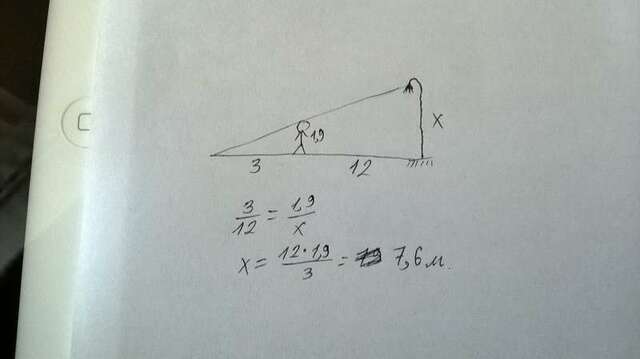 1,9
x
3
12
3/12 = 1,9/x
x = 12·1,9/3 = 7,6 м.